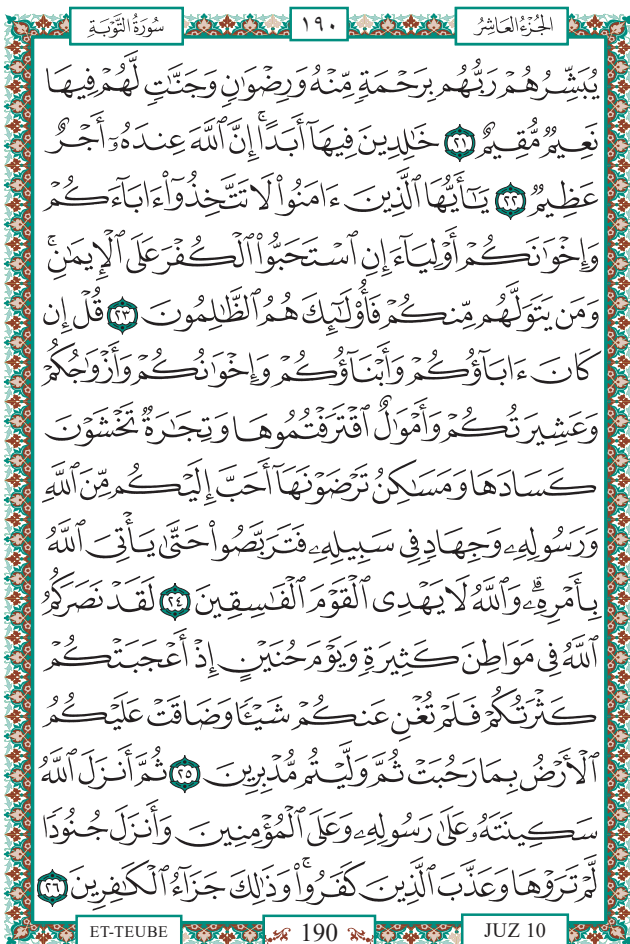 سُورَةُ التَّوْبَةِ ١٩٠ الجُزْءُ العَاشِرُ
يُبَشِّرُهُمْ رَبُّهُم بِرَحْمَةٍ مِّنْهُ وَرِضْوَٰنٍ وَجَنَّٰتٍ لَّهُمْ فِيهَا
نَعِيمٌ مُّقِيمٌ ٢١ خَٰلِدِينَ فِيهَآ أَبَدًاۚ إِنَّ ٱللَّهَ عِندَهُۥٓ أَجْرٌ
عَظِيمٌ ٢٢ يَٰٓأَيُّهَا ٱلَّذِينَ ءَامَنُوا۟ لَا تَتَّخِذُوٓا۟ ءَابَآءَكُمْ
وَإِخْوَٰنَكُمْ أَوْلِيَآءَ إِنِ ٱسْتَحَبُّوا۟ ٱلْكُفْرَ عَلَى ٱلْإِيمَٰنِۚ
وَمَن يَتَوَلَّهُم مِّنكُمْ فَأُو۟لَٰٓئِكَ هُمُ ٱلظَّٰلِمُونَ ٢٣ قُلْ إِن
كَانَ ءَابَآؤُكُمْ وَأَبْنَآؤُكُمْ وَإِخْوَٰنُكُمْ وَأَزْوَٰجُكُمْ
وَعَشِيرَتُكُمْ وَأَمْوَٰلٌ ٱقْتَرَفْتُمُوهَا وَتِجَٰرَةٌ تَخْشَوْنَ
كَسَادَهَا وَمَسَٰكِنُ تَرْضَوْنَهَآ أَحَبَّ إِلَيْكُم مِّنَ ٱللَّهِ
وَرَسُولِهِۦ وَجِهَادٍ فِى سَبِيلِهِۦ فَتَرَبَّصُوا۟ حَتَّىٰ يَأْتِىَ ٱللَّهُ
بِأَمْرِهِۦۗ وَٱللَّهُ لَا يَهْدِى ٱلْقَوْمَ ٱلْفَٰسِقِينَ ٢٤ لَقَدْ نَصَرَكُمُ
ٱللَّهُ فِى مَوَاطِنَ كَثِيرَةٍ وَيَوْمَ حُنَيْنٍ إِذْ أَعْجَبَتْكُمْ
كَثْرَتُكُمْ فَلَمْ تُغْنِ عَنكُمْ شَيْـًٔا وَضَاقَتْ عَلَيْكُمُ
ٱلْأَرْضُ بِمَا رَحُبَتْ ثُمَّ وَلَّيْتُم مُّدْبِرِينَ ٢٥ ثُمَّ أَنزَلَ ٱللَّهُ
سَكِينَتَهُۥ عَلَىٰ رَسُولِهِۦ وَعَلَى ٱلْمُؤْمِنِينَ وَأَنزَلَ جُنُودًا
لَّمْ تَرَوْهَا وَعَذَّبَ ٱلَّذِينَ كَفَرُوا۟ۚ وَذَٰلِكَ جَزَآءُ ٱلْكَٰفِرِينَ ٢٦
ET-TEUBE 190 JUZ 10